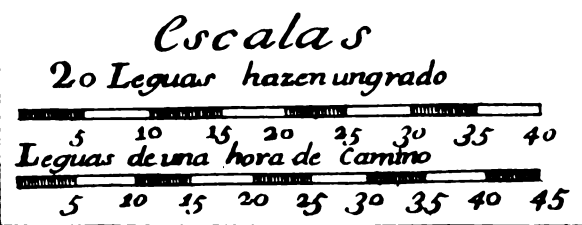 Escalas
20 Leguas hazen un grado
5 10 15 20 25 30 35 40
Leguas de una hora de Camino
5 10 15 20 25 30 35 40 45